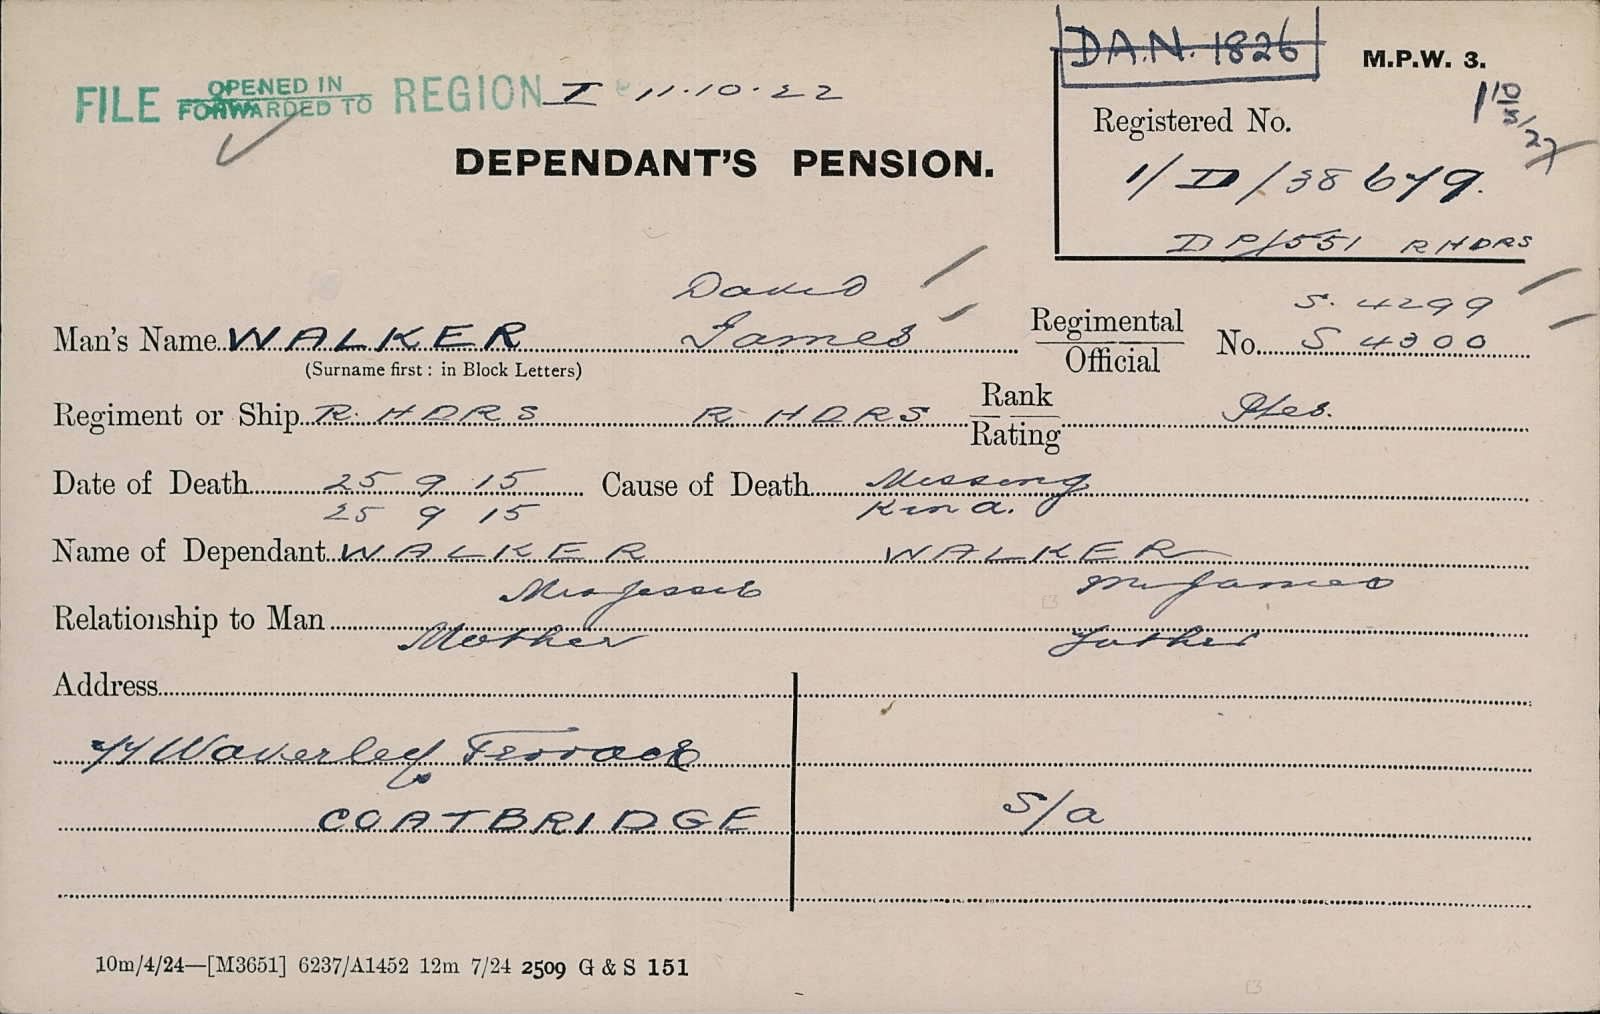 DA.N. 1826
M.P.W. 3.
FILE OPENED IN FORWARDED TO REGION I 11.10.22
1 10/5/27
Registered No.
DEPENDANT'S PENSION.
1/D/38679.
DP/551 RHDRS
David
S. 4299
Man's Name WALKER James Regimental Official No. S 4300
(Surname first : in Block Letters)
Regiment or Ship R. HDRS R. HDRS Rank Rating Ptes.
Date of Death 25 9 15 Cause of Death Missing
25 9 15 K in a.
Name of Dependant WALKER WALKER
Mrs Jessie Mr James
Relationship to Man
Mother Father
Address
Waverley Terrace
COATBRIDGE S/a
10m/4/24—[M3651] 6237/A1452 12m 7/24 2509 G & S 151